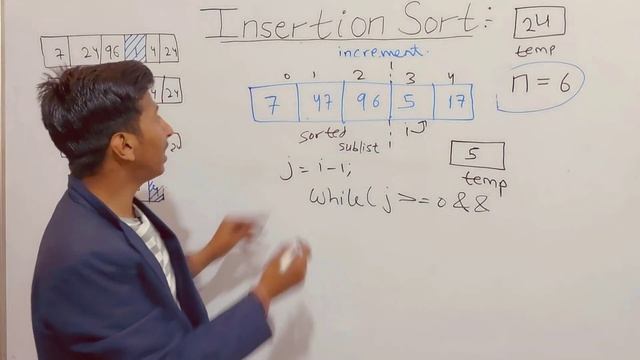 Insertion Sort :
24
temp
increment.
7 24 96 4 24
0 1 2 3 4
n = 6
7 47 96 5 17
4 24
sorted
sublist
i
5
temp
j = i-1;
while( j >= 0 &&